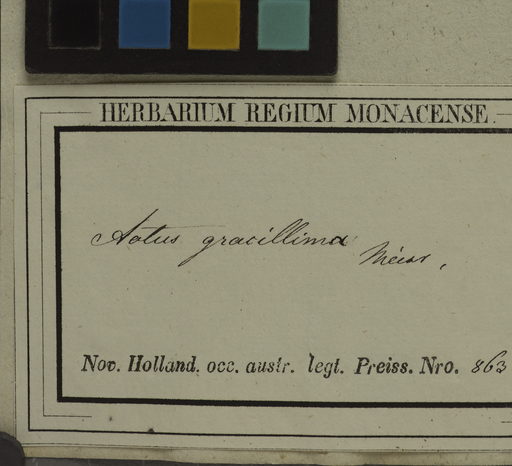 HERBARIUM REGIUM MONACENSE.
Aotus gracillima
Meisn,
Nov. Holland. occ. austr. legt. Preiss. Nro. 863